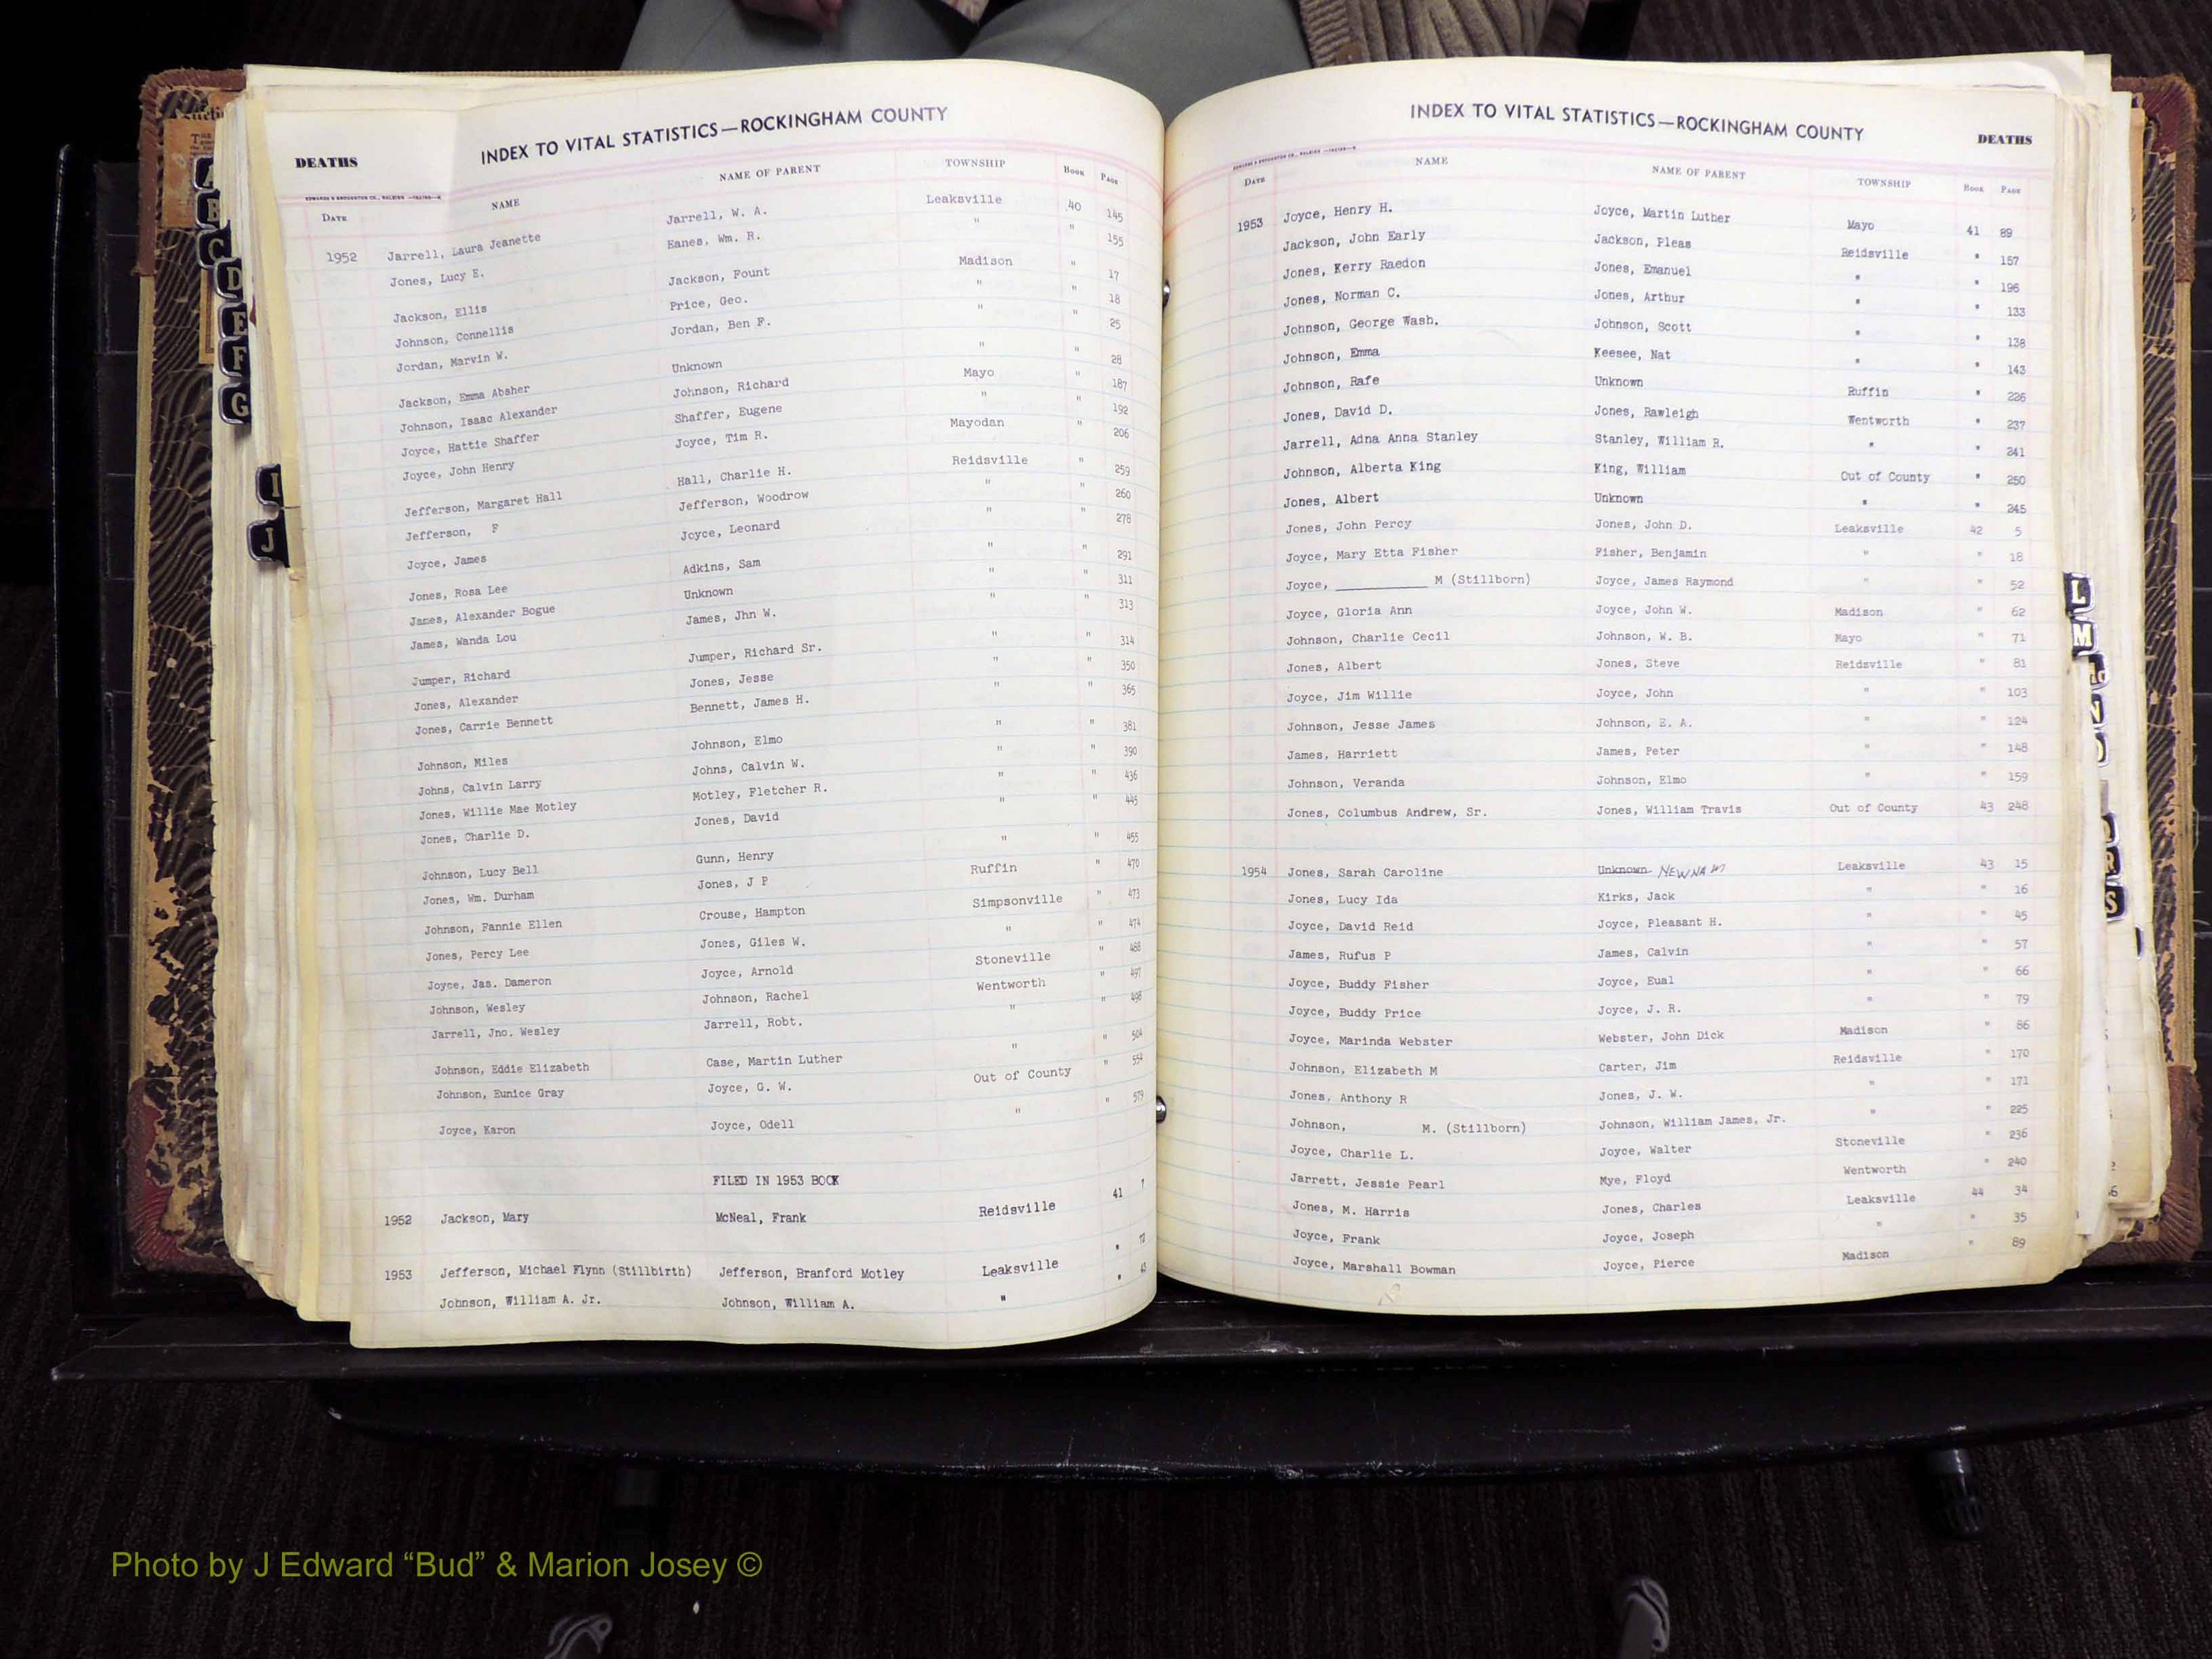 INDEX TO VITAL STATISTICS—ROCKINGHAM COUNTY
DEATHS
DATE NAME NAME OF PARENT TOWNSHIP BOOK PAGE
1952 Jarrell, Laura Jeanette Jarrell, W. A. Leaksville 40 145
Jones, Lucy E. Eanes, Wm. R. " " 155
Jackson, Ellis Jackson, Fount Madison " 17
Johnson, Connellis Price, Geo. " " 18
Jordan, Marvin W. Jordan, Ben F. " " 25
Jackson, Emma Absher Unknown " " 28
Johnson, Isaac Alexander Johnson, Richard Mayo " 187
Joyce, Hattie Shaffer Shaffer, Eugene " " 192
Joyce, John Henry Joyce, Tim R. Mayodan " 206
Jefferson, Margaret Hall Hall, Charlie H. Reidsville " 259
Jefferson, F Jefferson, Woodrow " " 260
Joyce, James Joyce, Leonard " " 278
Jones, Rosa Lee Adkins, Sam " " 291
James, Alexander Bogue Unknown " " 311
James, Wanda Lou James, Jhn W. " " 313
Jumper, Richard Jumper, Richard Sr. " " 314
Jones, Alexander Jones, Jesse " " 350
Jones, Carrie Bennett Bennett, James H. " " 365
Johnson, Miles Johnson, Elmo " " 381
Johns, Calvin Larry Johns, Calvin W. " " 390
Jones, Willie Mae Motley Motley, Fletcher R. " " 436
Jones, Charlie D. Jones, David " " 445
Johnson, Lucy Bell Gunn, Henry " " 455
Jones, Wm. Durham Jones, J P Ruffin " 470
Johnson, Fannie Ellen Crouse, Hampton Simpsonville " 473
Jones, Percy Lee Jones, Giles W. " " 474
Joyce, Jas. Dameron Joyce, Arnold Stoneville " 488
Johnson, Wesley Johnson, Rachel Wentworth " 497
Jarrell, Jno. Wesley Jarrell, Robt. " " 498
Johnson, Eddie Elizabeth Case, Martin Luther " " 504
Johnson, Eunice Gray Joyce, G. W. Out of County " 554
Joyce, Karon Joyce, Odell " " 579
FILED IN 1953 BOOK
1952 Jackson, Mary McNeal, Frank Reidsville 41
1953 Jefferson, Michael Flynn (Stillbirth) Jefferson, Branford Motley Leaksville "
Johnson, William A. Jr. Johnson, William A. " "
INDEX TO VITAL STATISTICS—ROCKINGHAM COUNTY
DEATHS
DATE NAME NAME OF PARENT TOWNSHIP BOOK PAGE
1953 Joyce, Henry H. Joyce, Martin Luther Mayo 41 89
Jackson, John Early Jackson, Pleas Reidsville " 157
Jones, Kerry Raedon Jones, Emanuel " " 196
Jones, Norman C. Jones, Arthur " " 133
Johnson, George Wash. Johnson, Scott " " 138
Johnson, Emma Keesee, Nat " " 143
Johnson, Rafe Unknown Ruffin " 226
Jones, David D. Jones, Rawleigh Wentworth " 237
Jarrell, Adna Anna Stanley Stanley, William R. " " 241
Johnson, Alberta King King, William Out of County " 250
Jones, Albert Unknown " " 245
Jones, John Percy Jones, John D. Leaksville 42 5
Joyce, Mary Etta Fisher Fisher, Benjamin " " 18
Joyce, ____________ M (Stillborn) Joyce, James Raymond " " 52
Joyce, Gloria Ann Joyce, John W. Madison " 62
Johnson, Charlie Cecil Johnson, W. B. Mayo " 71
Jones, Albert Jones, Steve Reidsville " 81
Joyce, Jim Willie Joyce, John " " 103
Johnson, Jesse James Johnson, E. A. " " 124
James, Harriett James, Peter " " 148
Johnson, Veranda Johnson, Elmo " " 159
Jones, Columbus Andrew, Sr. Jones, William Travis Out of County 43 248
1954 Jones, Sarah Caroline Unknown NEWNAM Leaksville 43 15
Jones, Lucy Ida Kirks, Jack " " 16
Joyce, David Reid Joyce, Pleasant H. " " 45
James, Rufus P James, Calvin " " 57
Joyce, Buddy Fisher Joyce, Eual " " 66
Joyce, Buddy Price Joyce, J. R. " " 79
Joyce, Marinda Webster Webster, John Dick Madison " 86
Johnson, Elizabeth M Carter, Jim Reidsville " 170
Jones, Anthony R Jones, J. W. " " 171
Johnson, M. (Stillborn) Johnson, William James, Jr. " " 225
Joyce, Charlie L. Joyce, Walter Stoneville " 236
Jarrett, Jessie Pearl Mye, Floyd Wentworth " 240
Jones, M. Harris Jones, Charles Leaksville 44 34
Joyce, Frank Joyce, Joseph " " 35
Joyce, Marshall Bowman Joyce, Pierce Madison " 89
A
B
C
D
E
F
G
I
J
L
M
R
S
Photo by J Edward “Bud” & Marion Josey ©